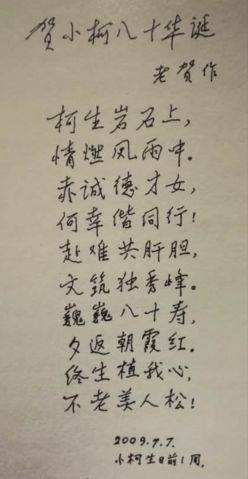 贺小柯八十华诞
老贺作
柯生岩石上，
情燃风雨中。
赤诚德才女，
何幸偕同行！
赴难共肝胆，
文筑独秀峰。
巍巍八十寿，
夕返朝霞红。
终生植我心，
不老美人松！
2009.7.7.
小柯生日前1周.